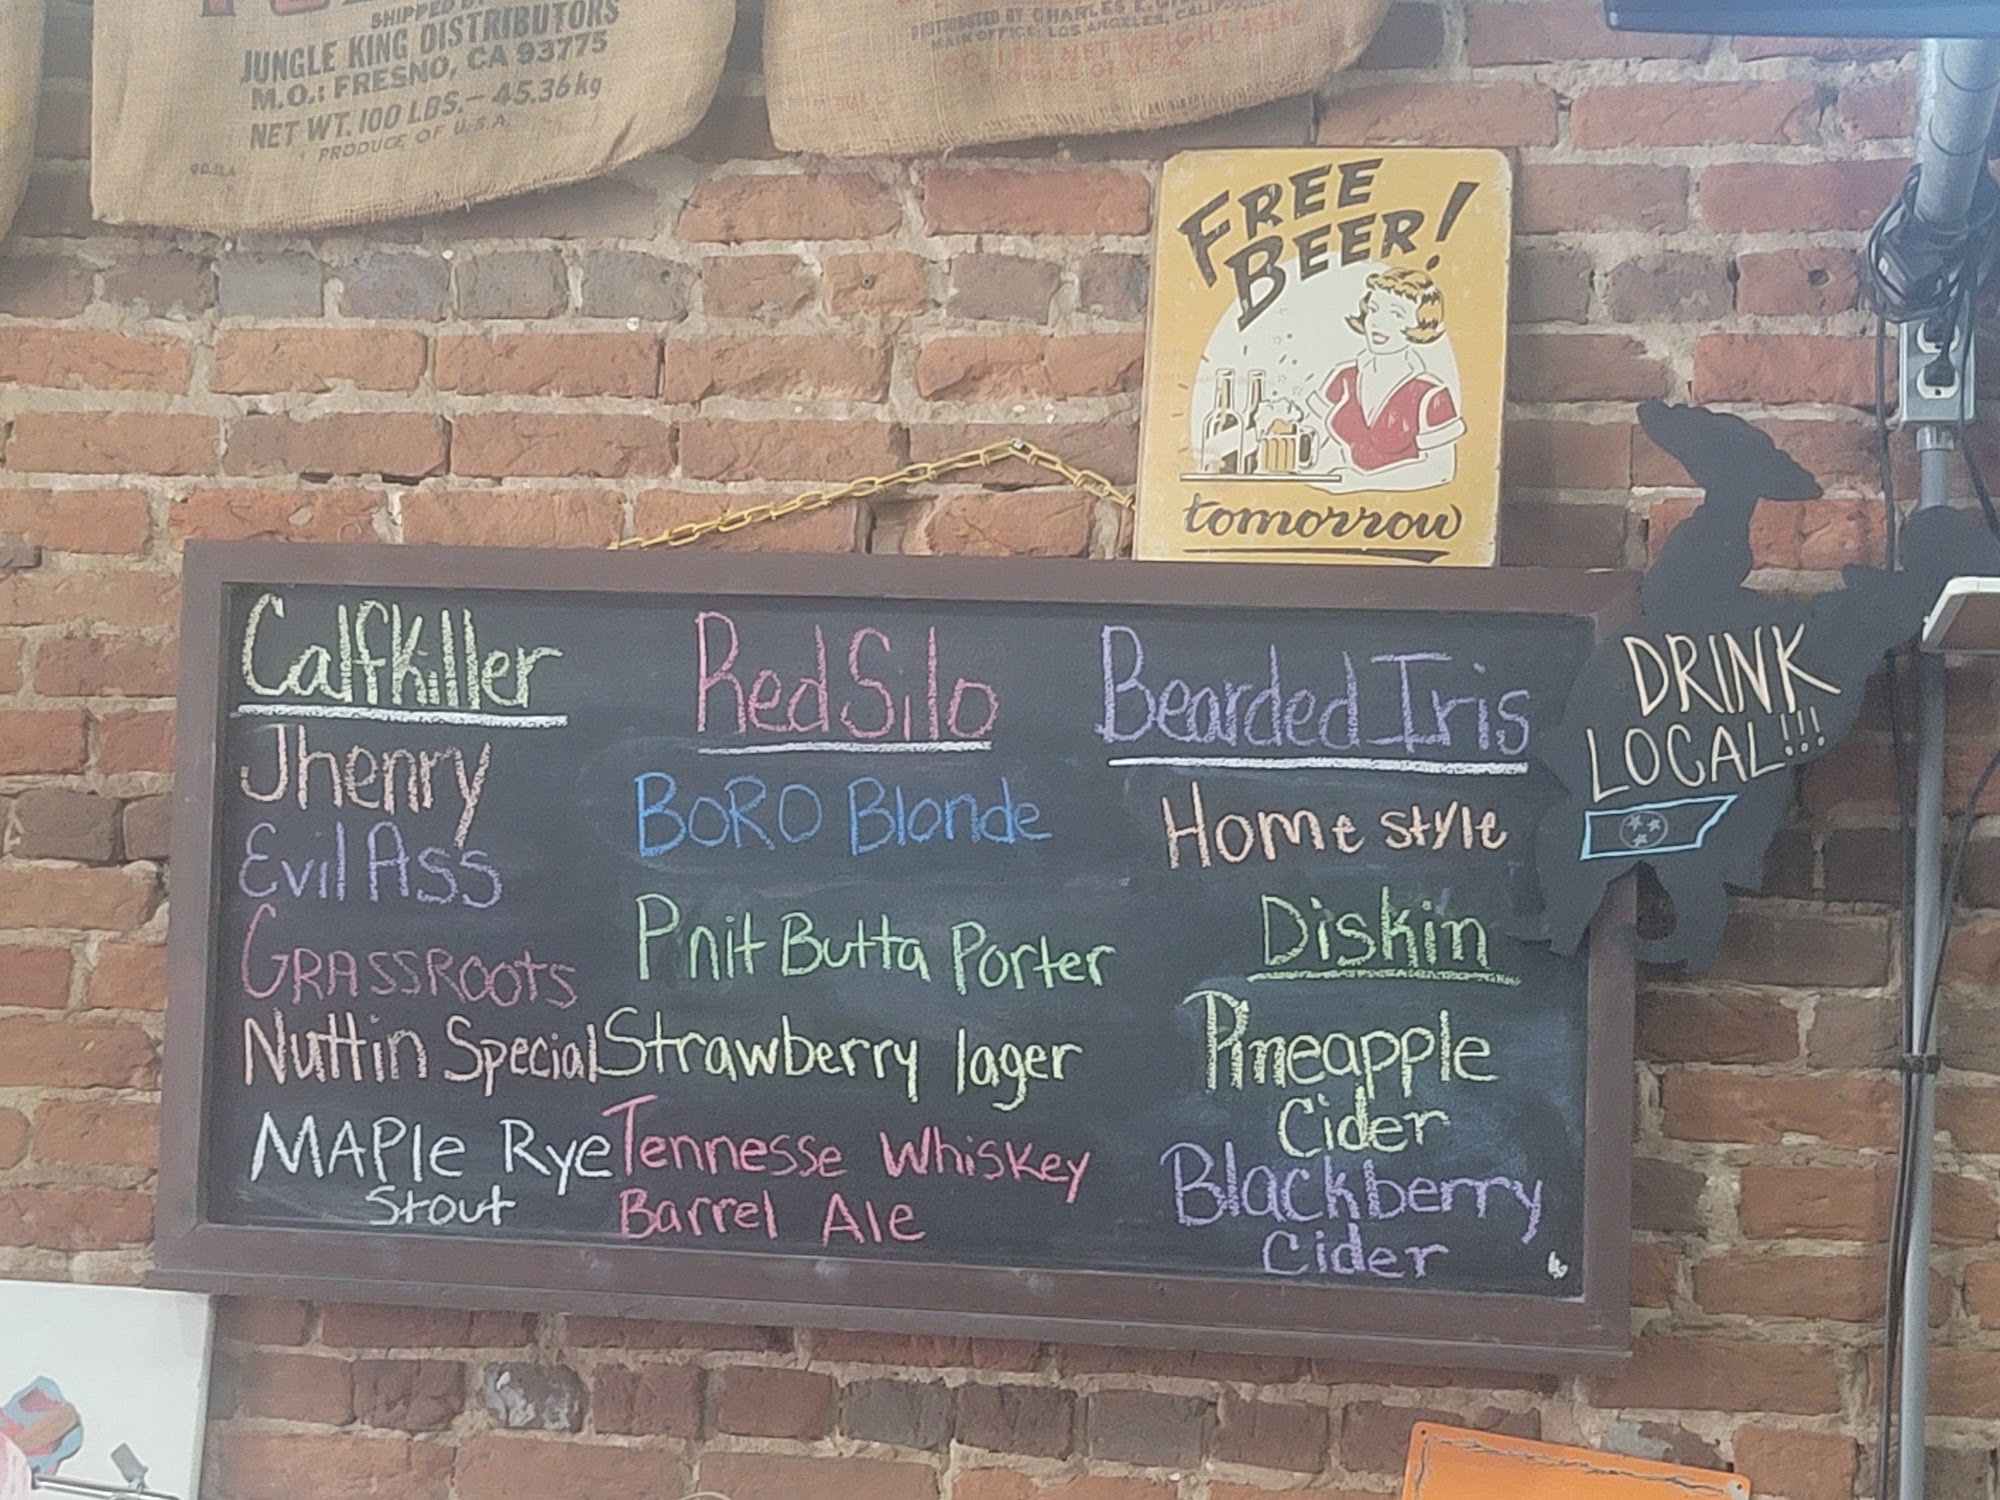 SHIPPED
JUNGLE KING DISTRIBUTORS
M.O.: FRESNO, CA 93775
NET WT. 100 LBS.— 45.36kg
PRODUCE OF U.S.A.
DISTRIBUTED BY CHARLES
MAIN OFFICE: LOS ANGELES,
NET WEIGHT
PRODUCE OF U.S.A.
FREE
BEER!
tomorrow
Calfkiller
Jhenry
Evil Ass
GRASSROOTS
Nuttin Special
MAPle Rye
Stout
Red Silo
BORO Blonde
Pnit Butta Porter
Strawberry lager
Tennesse Whiskey
Barrel Ale
Bearded Iris
Home style
Diskin
Pineapple
Cider
Blackberry
Cider
DRINK
LOCAL!!!